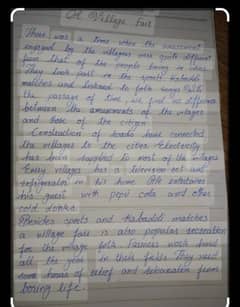 A Village Fair
There was a time when the amusement
enjoyed by the villagers were quite different
from that of the people living in cities.
They took part in the sports kabaddi
matches and listened to folk songs. With
the passage of time, we find no difference
between the amusements of the villages
and those of the citizen
Construction of roads have connected
the villages to the cities. Electricity
has been supplied to most of the villages
Every villages has a television set and
refrigerator in his home. He entertains
his guest with pepsi cola and other
cold drinks.
Besides sports and kabaddi matches
a village fair is also popular recreation
for the village folk Farmers work hard
all the year in their fields They need
some hours of relief and relaxation from
boring life.